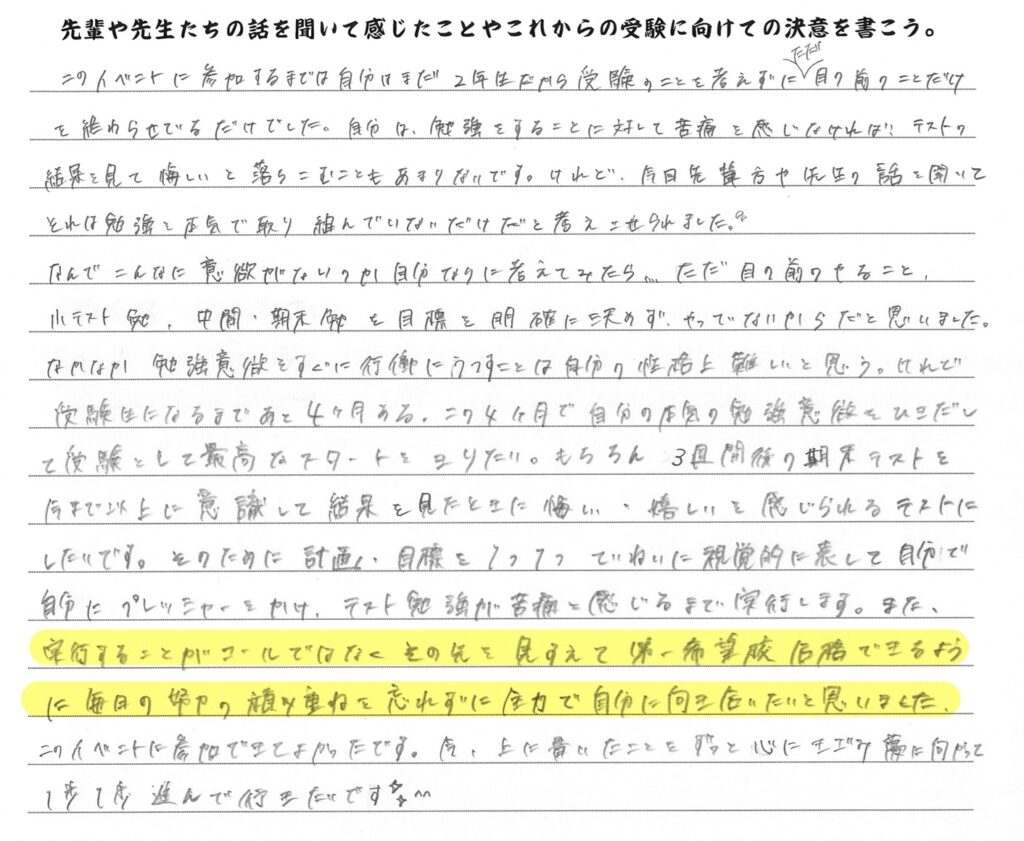 先輩や先生たちの話を聞いて感じたことやこれからの受験に向けての決意を書こう。
このイベントに参加するまでは自分はまだ2年生だから受験のことを考えずにただ目の前のことだけ
を終わらせているだけでした。自分は、勉強をすることに対して苦痛を感じなければ、テストの
結果を見て悔しいと落ちこむこともあまりないです。けれど、今日先輩方や先生の話を聞いて
それは勉強を本気で取り組んでいないだけだと考えさせられました。
なんでこんなに意欲がないのか自分なりに考えてみたら…ただ目の前のやること、
小テスト勉、中間・期末勉を目標を明確に決めず、やっていないからだと思いました。
なかなか勉強意欲をすぐに行動にうつすことは自分の性格上難しいと思う。けれど
受験生になるまであと4ヶ月ある。この4ヶ月で自分の本気の勉強意欲をひきだし
て受験として最高なスタートをきりたい。もちろん3週間後の期末テストを
今まで以上に意識して結果を見たときに悔しい・嬉しいを感じられるテストに
したいです。そのために計画・目標を1つ1つていねいに視覚的に表して自分で
自分にプレッシャーをかけ、テスト勉強が苦痛と感じるまで実行します。また、
実行することがゴールではなくその先を見すえて第一希望校合格できるよう
に毎日の努力の積み重ねを忘れずに全力で自分に向き合いたいと思いました。
このイベントに参加できてよかったです。今、上に書いたことをずっと心にきざみ夢に向かって
1歩1歩進んで行きたいです